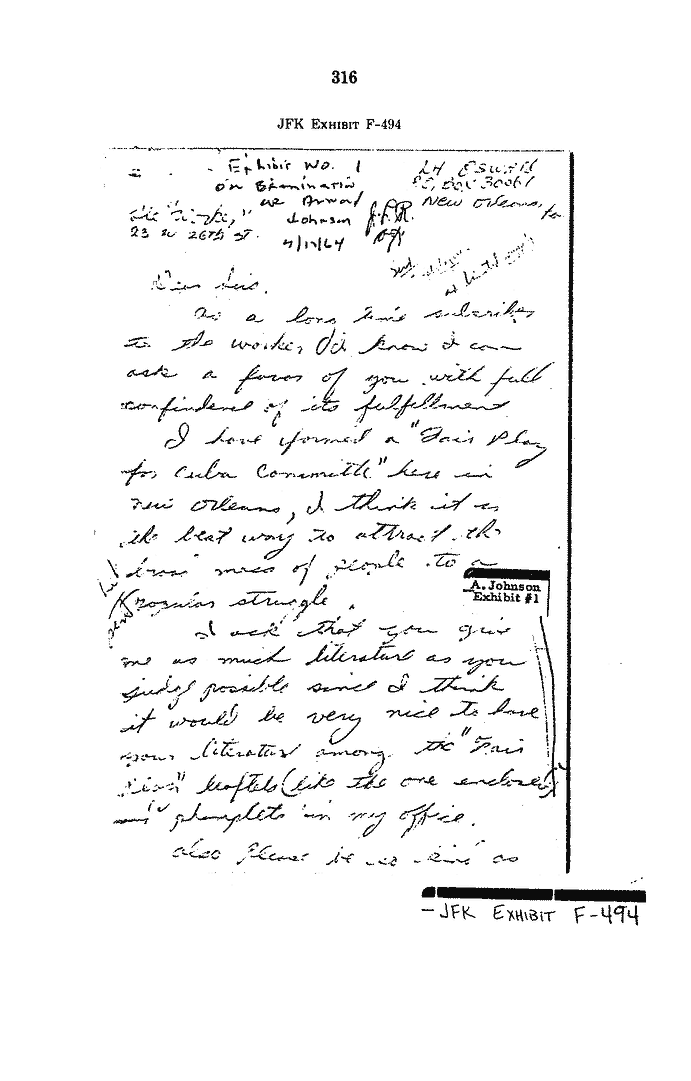 316
JFK EXHIBIT F-494
Exhibit No. 1
LH OSWALD
on Examination
PO, BOX 30061
New Orleans, La
Johnson J.P.R.
23 W 26TH ST.
4/17/64
Dear Sirs,
As a long time subscriber
to the worker I know I can
ask a favor of you with full
confindence of its fulfillment
I have formed a "Fair Play
for Cuba Committe" here in
New Orleans, I think it is
the best way to attract the
broad mass of people to a
popular struggle.
A. Johnson
Exhibit #1
I ask that you give
me as much literature as you
judge possible since I think
it would be very nice to have
your literature among the "Fair
Play" leaflets (like the one enclosed)
and phamplets in my office.
also Please be so kind as
JFK EXHIBIT F-494